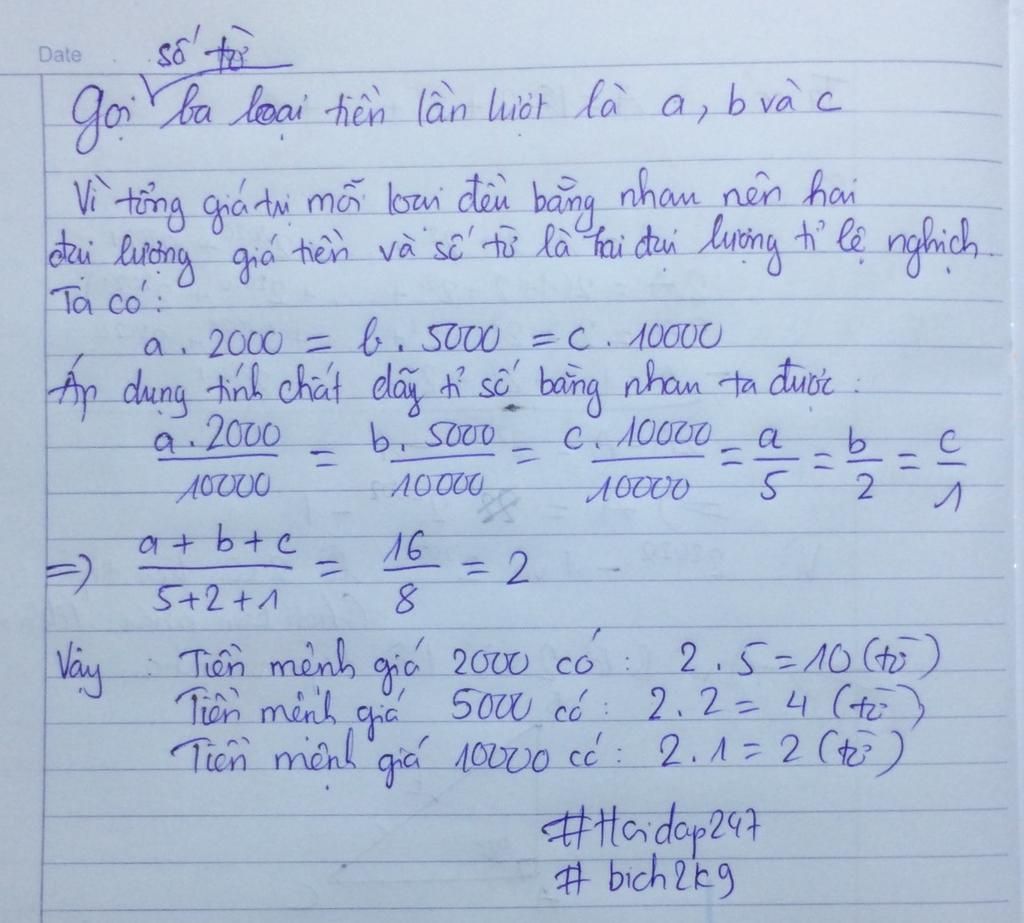 Date
số tờ
Gọi ba loại tiền lần lượt là a, b và c
Vì tổng giá trị mỗi loại đều bằng nhau nên hai
đại lượng giá tiền và số tờ là hai đại lượng tỉ lệ nghịch.
Ta có:
a . 2000 = b . 5000 = c . 10000
Áp dụng tính chất dãy tỉ số bằng nhau ta được:
a . 2000 / 10000 = b . 5000 / 10000 = c . 10000 / 10000 = a / 5 = b / 2 = c / 1
=> a + b + c / 5 + 2 + 1 = 16 / 8 = 2
Vậy Tiền mệnh giá 2000 có : 2 . 5 = 10 (tờ)
Tiền mệnh giá 5000 có : 2 . 2 = 4 (tờ)
Tiền mệnh giá 10000 có : 2 . 1 = 2 (tờ)
#Hoidap247
# bich2kg